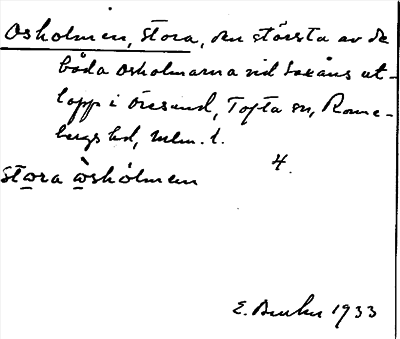 Osholmen, Stora, den största av de
båda Osholmarna vid Saxåns ut-
lopp i Öresund, Tofta sn, Rönne-
bergs hd, Mlm. l.
4.
stora ösholmen
E. 1933